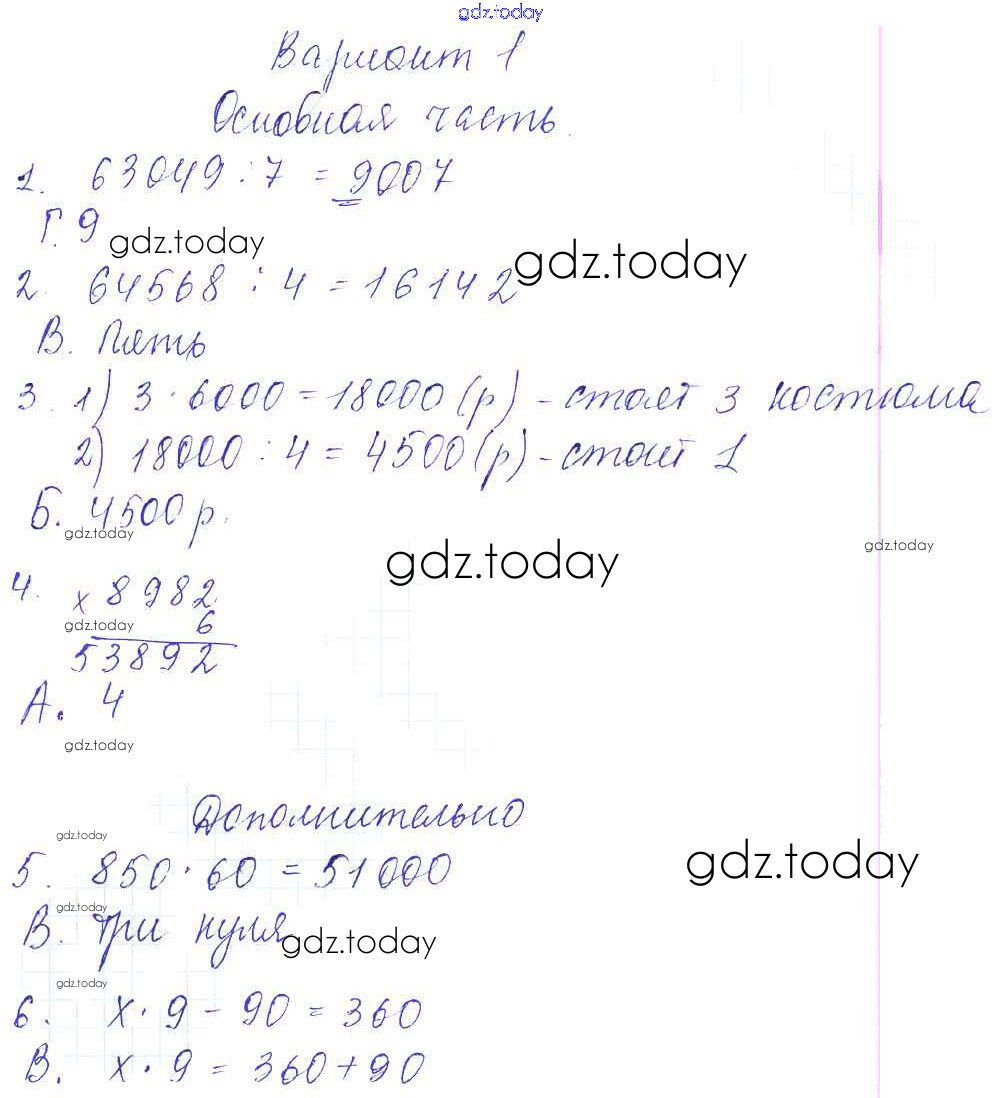 gdz.today
Вариант 1
Основная часть.
1. 63049 : 7 = 9007
Г. 9
gdz.today
gdz.today
2. 64568 : 4 = 16142
В. Пять
3. 1) 3 · 6000 = 18000 (р) - стоят 3 костюма
2) 18000 : 4 = 4500 (р) - стоит 1
Б. 4500 р.
gdz.today
gdz.today
gdz.today
4. х 8982
gdz.today
6
53892
А. 4
gdz.today
Дополнительно
gdz.today
5. 850 · 60 = 51000
gdz.today
gdz.today
В. три нуля
gdz.today
gdz.today
6. х · 9 - 90 = 360
В. х · 9 = 360 + 90